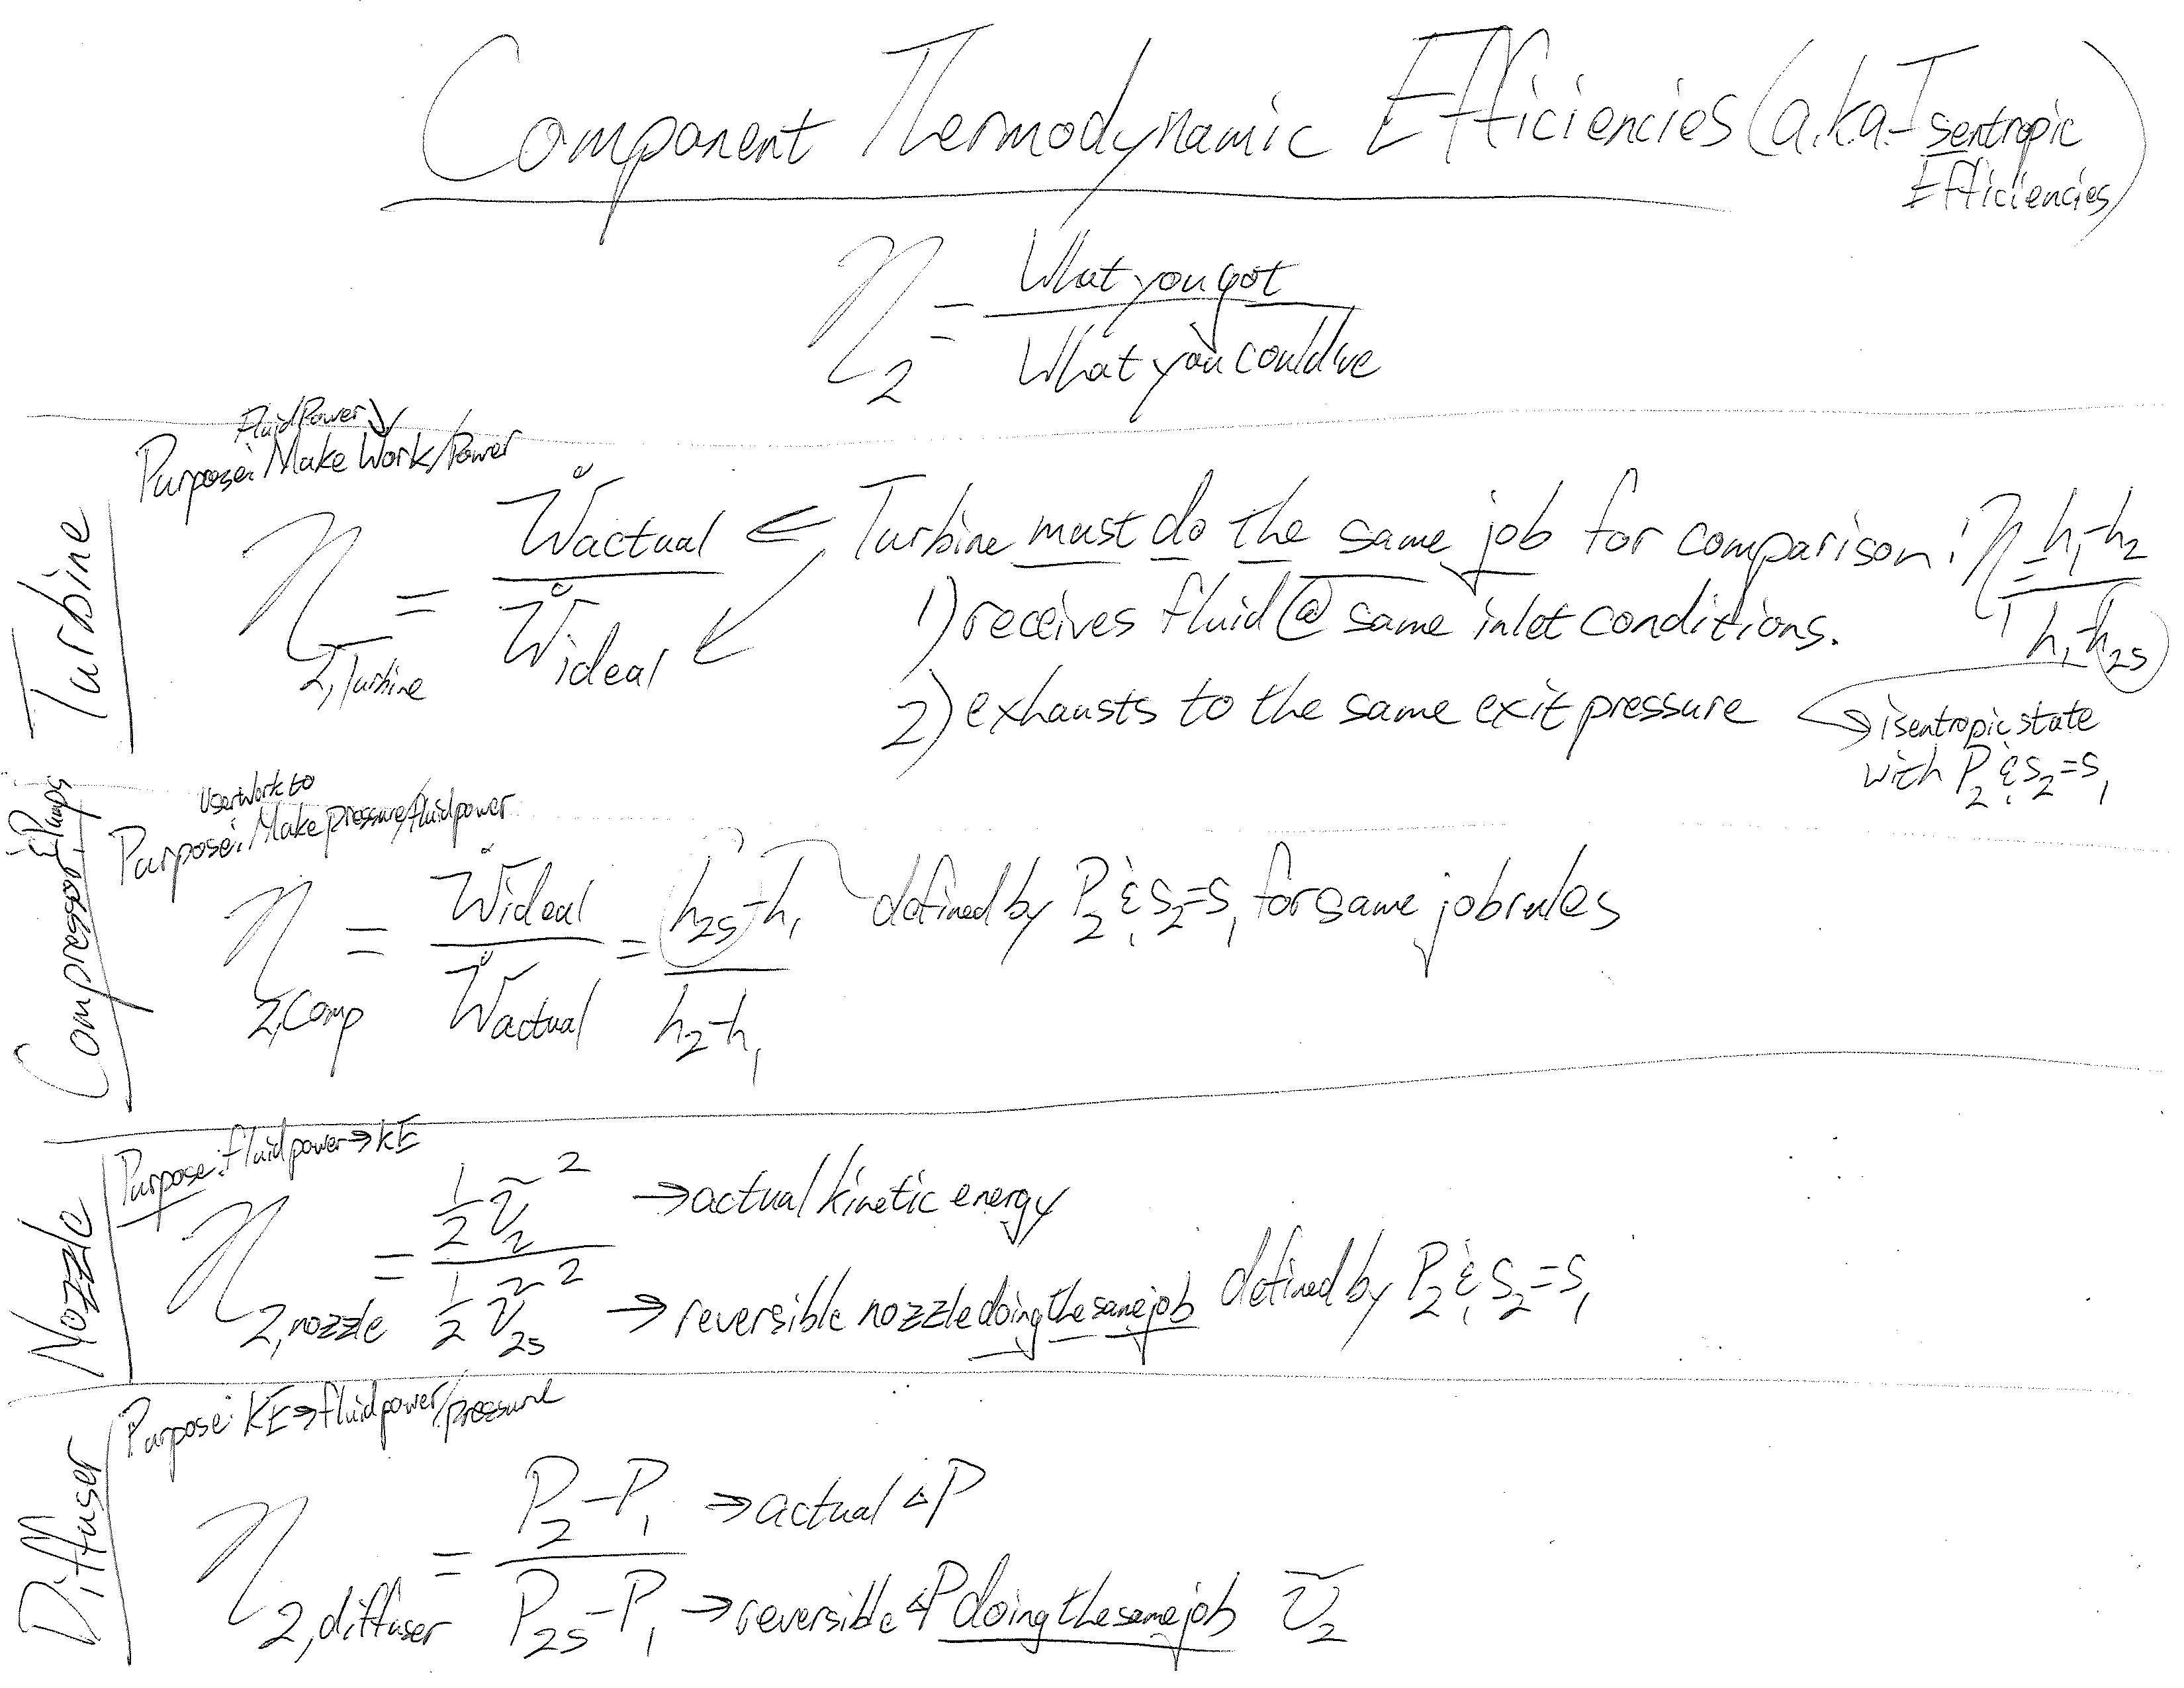 Component Thermodynamic Efficiencies (a.k.a. Isentropic Efficiencies)
η₂ = What you got / What you could've
Turbine
Fluid Power ↘
Purpose: Make Work/Power
η₂,Turbine = Ẇactual / Ẇideal
← Turbine must do the same job for comparison: η = h₁-h₂ / h₁-h₂s
1) receives fluid @ same inlet conditions.
2) exhausts to the same exit pressure
→ isentropic state
with P₂ & s₂=s₁
Compressor & Pumps
Use Work to
Purpose: Make pressure/fluid power
η₂,Comp = Ẇideal / Ẇactual = h₂s-h₁ / h₂-h₁
defined by P₂ & s₂=s₁ for same job rules
Nozzle
Purpose: fluid power → KE
η₂,nozzle = ½ṽ₂² / ½ṽ₂s²
→ actual kinetic energy
→ reversible nozzle doing the same job defined by P₂ & s₂=s₁
Diffuser
Purpose: KE → fluid power/pressure
η₂,diffuser = P₂-P₁ / P₂s-P₁
→ actual ΔP
→ reversible ΔP doing the same job ṽ₂